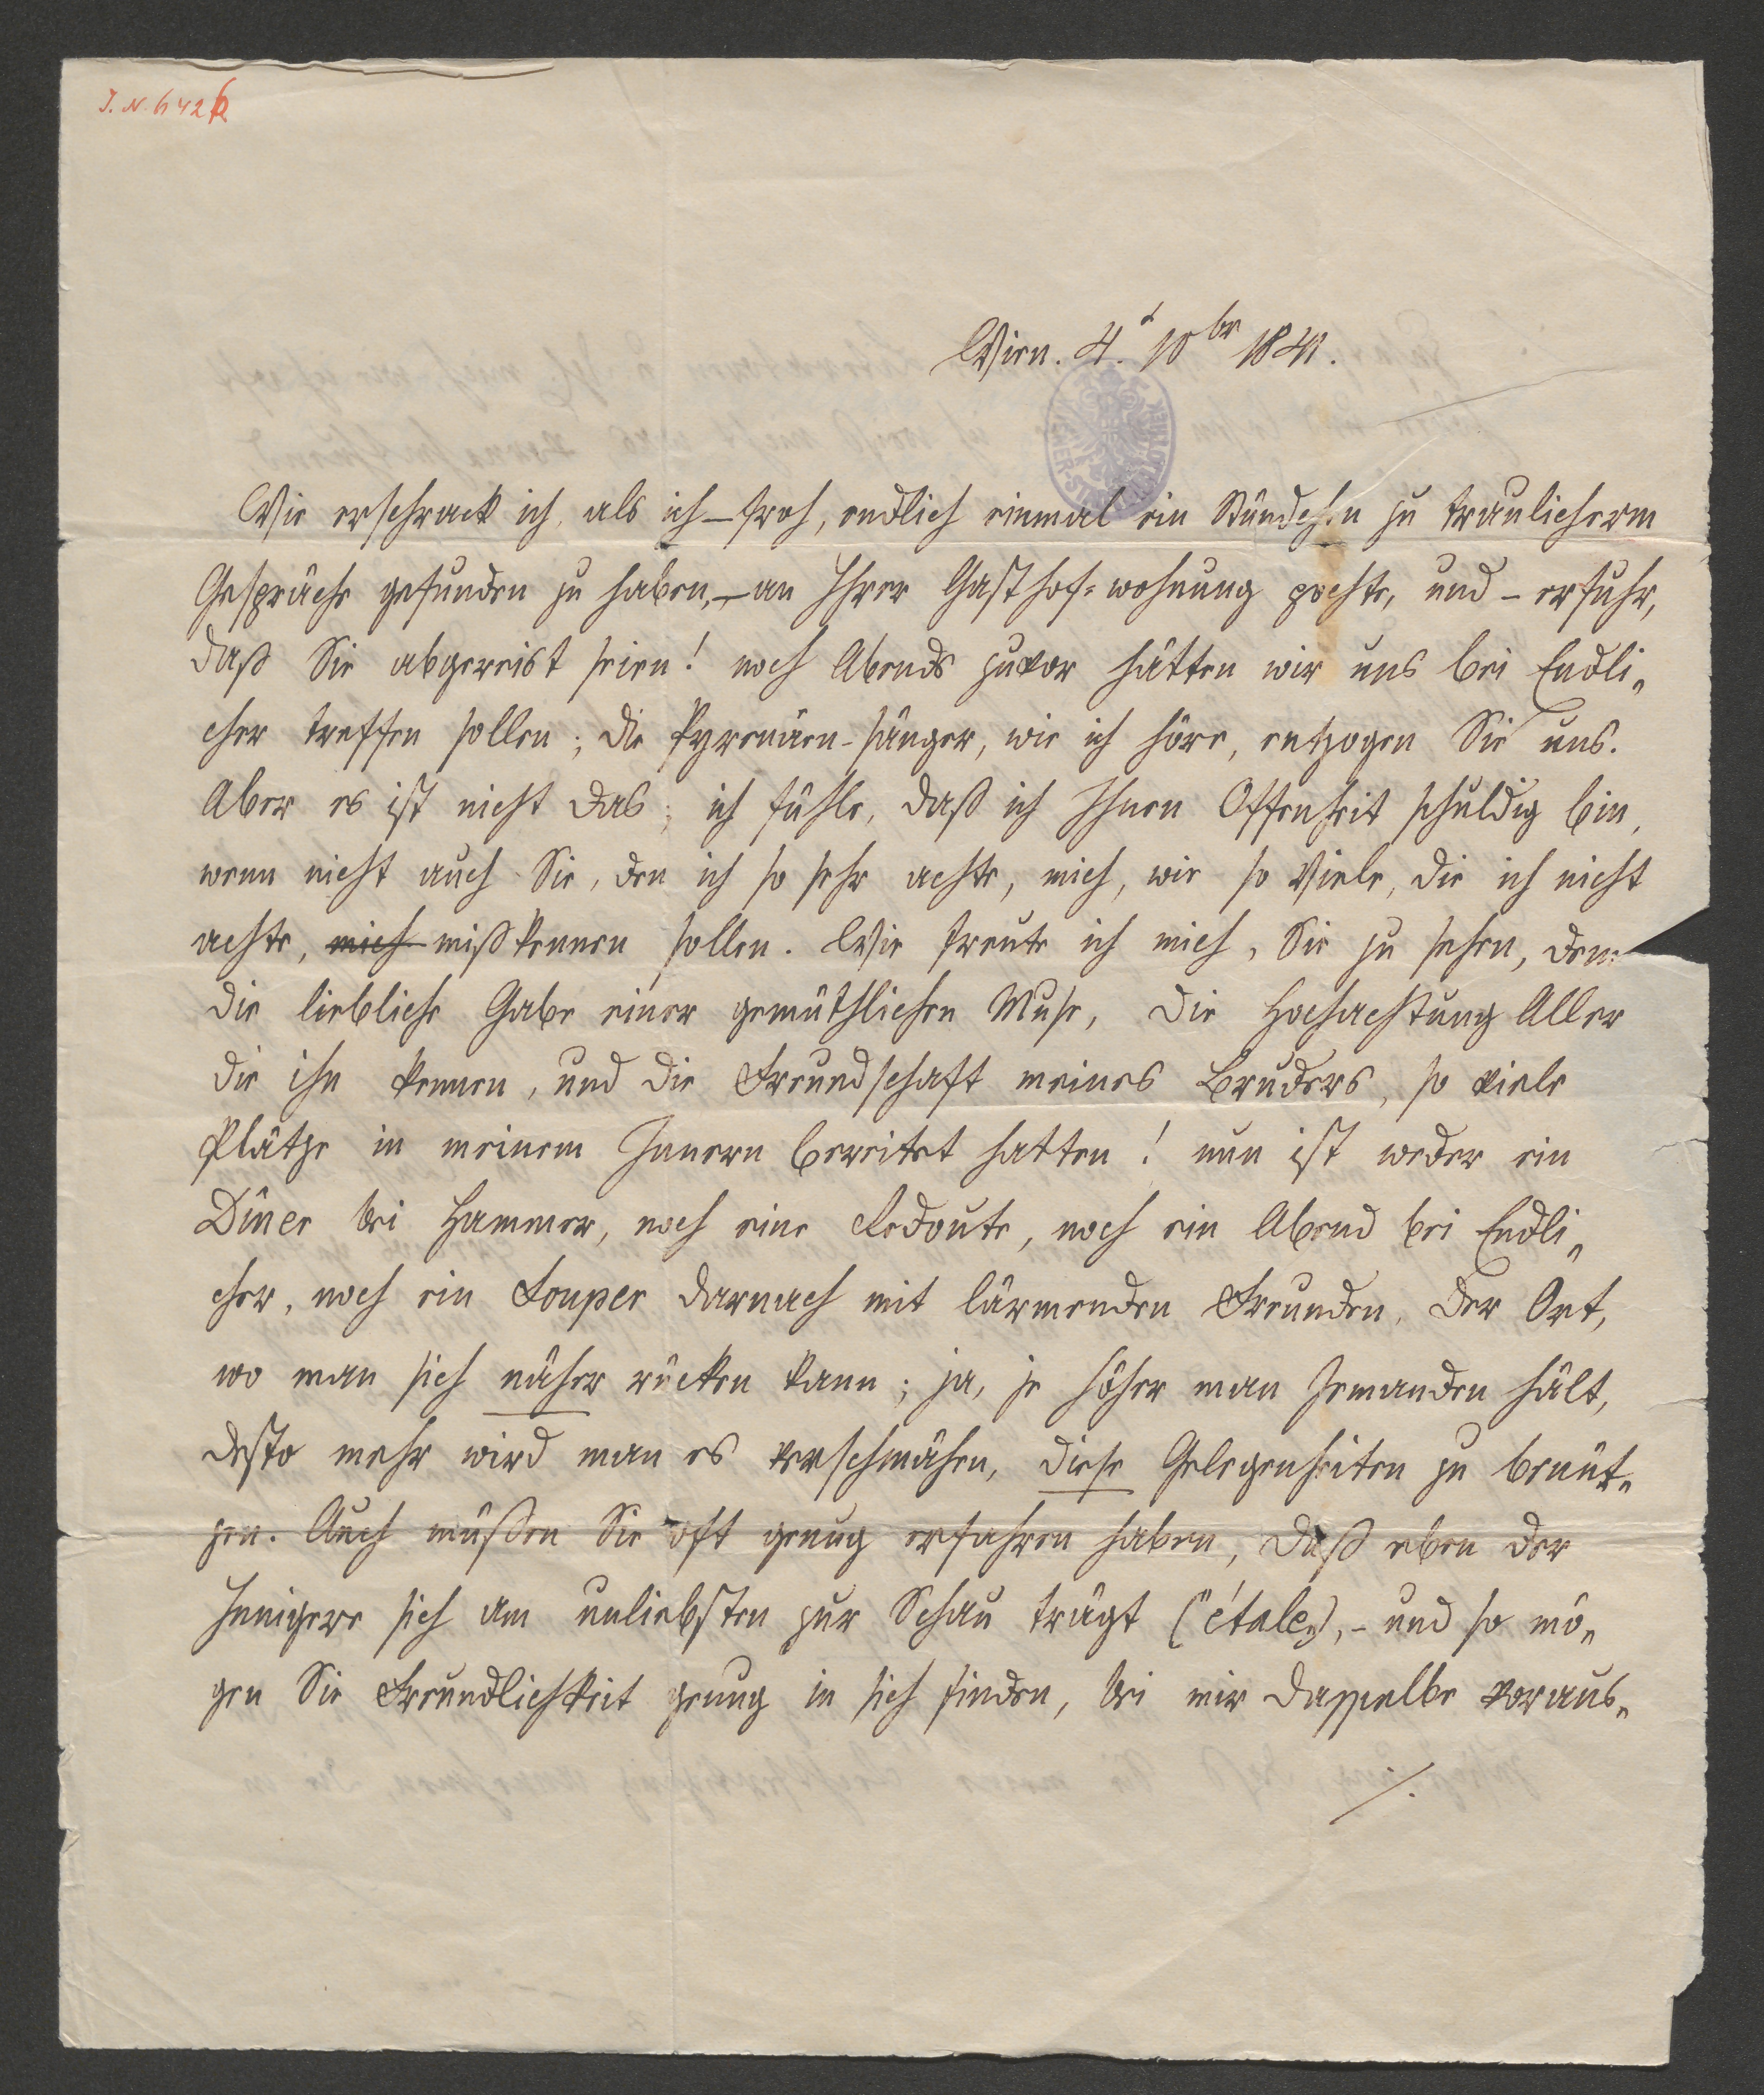 J. N. 6426
Wien. 4.t 10br 1841.
Wie erschrack ich, als ich – froh, endlich einmal ein Stündchen zu traulicherm
Gespräche gefunden zu haben, – an Ihrer Gasthof-wohnung pochte, und – erfuhr,
daß Sie abgereist seien! noch Abends zuvor hätten wir uns bei Endli„
cher treffen sollen; die Pyrenäen-sänger, wie ich höre, entzogen Sie uns.
Aber es ist nicht das; ich fühle, daß ich Ihnen Offenheit schuldig bin,
wenn nicht auch Sie, den ich so sehr achte, mich, wie so Viele, die ich nicht
achte, mich mißkennen sollen. Wie freute ich mich, Sie zu sehen, dem
die liebliche Gabe einer gemüthlichen Muse, die Hochachtung Aller
die ihn kennen, und die Freundschaft meines Bruders, so viele
Plätze in meinem Innern bereitet hatten! nun ist weder ein
Dîner bei Hammer, noch eine Redoute, noch ein Abend bei Endli„
cher, noch ein Souper darnach mit lärmenden Freunden, der Ort,
wo man sich näher rücken kann; ja, je höher man Jemanden hält,
desto mehr wird man es verschmähen, diese Gelegenheiten zu benüt„
zen. Auch müßen Sie oft genug erfahren haben, daß eben der
Innigere sich am unliebsten zur Schau trägt („étale„), – und so mö„
gen Sie Freundlichkeit genug in sich finden, bei mir dasselbe voraus„
/.